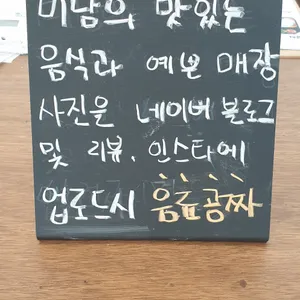 미남의 맛있는
음식과 예쁜 매장
사진을 네이버 블로그
및 리뷰, 인스타에
업로드시 음료공짜